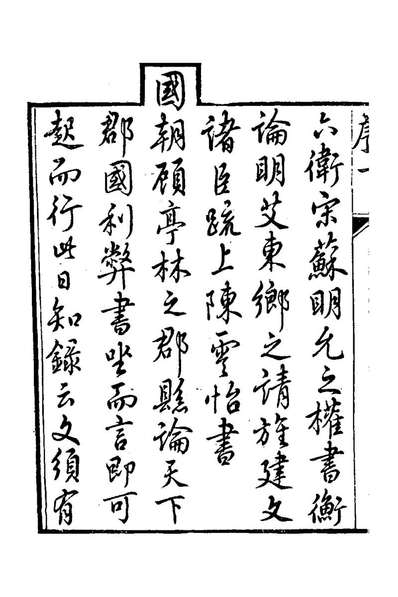 序一
六衛宋蘇明允之權書衡
論明艾東鄉之請旌建文
諸臣疏上陳雪怡書
國朝顧亭林之郡縣論天下
郡國利弊書坐而言即可
起而行此日知錄云文須有